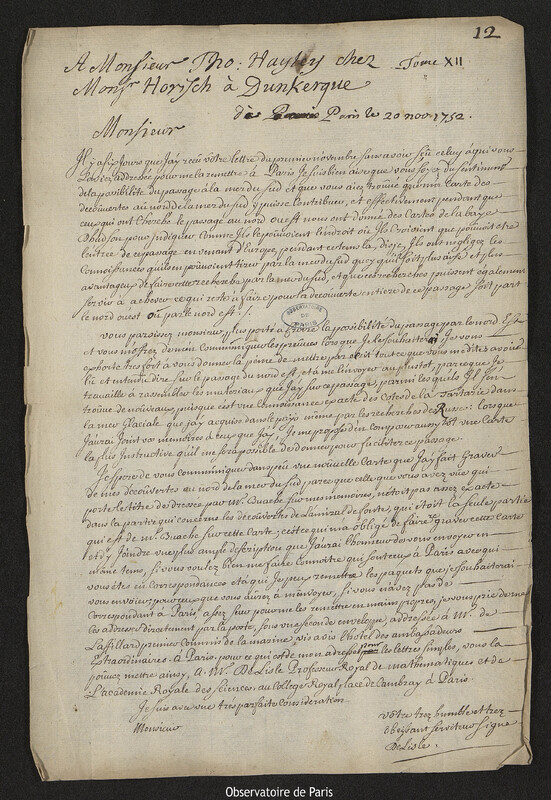 12
A Monsieur Tho: Hayley chez Tome XII
Monsr Horisch à Dunkerque
Paris le 20 novr. 1752.
Monsieur
Il y a six jours que j'ay reçu votre lettre du premier novembre sans avoir sçu celuy à qui vous
l'aviez addressée pour me la remettre à Paris Je suis bien aise que vous soyez du sentiment
de la possibilité du passage à la mer du sud et que vous aiez trouvé que ma Carte des
decouvertes au nord de la mer du sud y puisse Contribuer, et effectivement pendant que
ceux qui ont cherché le passage au nord ouest nous ont donné des Cartes de la baye
d'hudson pour indiquer comme ils le pouvoient l'endroit où Ils Croient que pouvoit etre
l'entrée de ce passage en venant d'Europe, pendant ce tems la, disje, ils ont negligé les
Connoissances qu'ils en pouvoient tirer par la mer du sud quoy qu'il soit plus aisé et plus
avantageux de faire cette recherche par la mer du sud, et que ces recherches puissent egalement
servir à achever ce qui reste à faire pour la decouverte entiere de ce passage soit par
le nord ouest ou par le nord est ./.
OBSERVATOIRE DE PARIS
vous paroissez monsieur plus porté à croire la possibilité du passage par le nord Est
et vous m'offrez de m'en Communiquer les preuves lors que Je le souhaiterai Je vous
exhorte tres fort à vous donner la peine de mettre par ecrit tout ce que vous medités avoir
lu et entendu dire sur le passage du nord est, et à me l'envoyer au plustot, parce que Je
travaille à rassembler les materiaux que J'ay sur ce passage, parmi lesquels Il s'en
trouve de nouveaux, puisque c'est une connoissance exacte des Cotes de la Tartarie dans
la mer Glaciale que j'ay acquis dans le païs même par les recherches des Russes: lorsque
J'aurai Joint vos memoires à ceux que J'ay, Je me propose d'en composer aussi tot une Carte
la plus Instructive qu'il me sera possible de donner pour faciliter ce passage.
J'espere de vous communiquer dans peu une nouvelle Carte que J'ay fait Graver
de mes découvertes au nord de la mer du sud parce que celle que vous avez vue qui
porte le titre de dressée par Mr. Buache sur mes memoires, n'etoit pas assez exacte
dans la partie qui concerne les découvertes de l'amiral de fonte, qui étoit la seule partie
qui est de Mr. Buache sur cette Carte; c'est ce qui m'a obligé de faire graver cette Carte
et d'y Joindre une plus ample description que J'aurai l'honneur de vous envoyer en
même tems, si vous voulez bien me faire connoitre qui sont ceux à Paris avec qui
vous êtes en Correspondances et à qui Je puis remettre les paquets que Je souhaiterai
vous envoyer ou ceux que vous aurez à m'envoyer, si vous n'avez pas de
Correspondant à Paris assez sur pour me les remettre en main propres, je vous prie de me
les adresser directement par la poste, sous une seconde enveloppe, addressée à Mr. de
Laffillard premier Commis de la marine, vis à vis l'hotel des ambassadeurs
Extraordinaires. à Paris pour ce qui est de mon adresse pour les lettres simples, vous la
pouvez mettre ainsy, à Mr. De Lisle Professeur Royal de mathematiques et de
L'academie Royale des sciences au College Royal place de Cambray à Paris.
Je suis avec une tres parfaite consideration
Monsieur
votre tres humble et tres
obeissant serviteur signé
De Lisle.
Observatoire de Paris